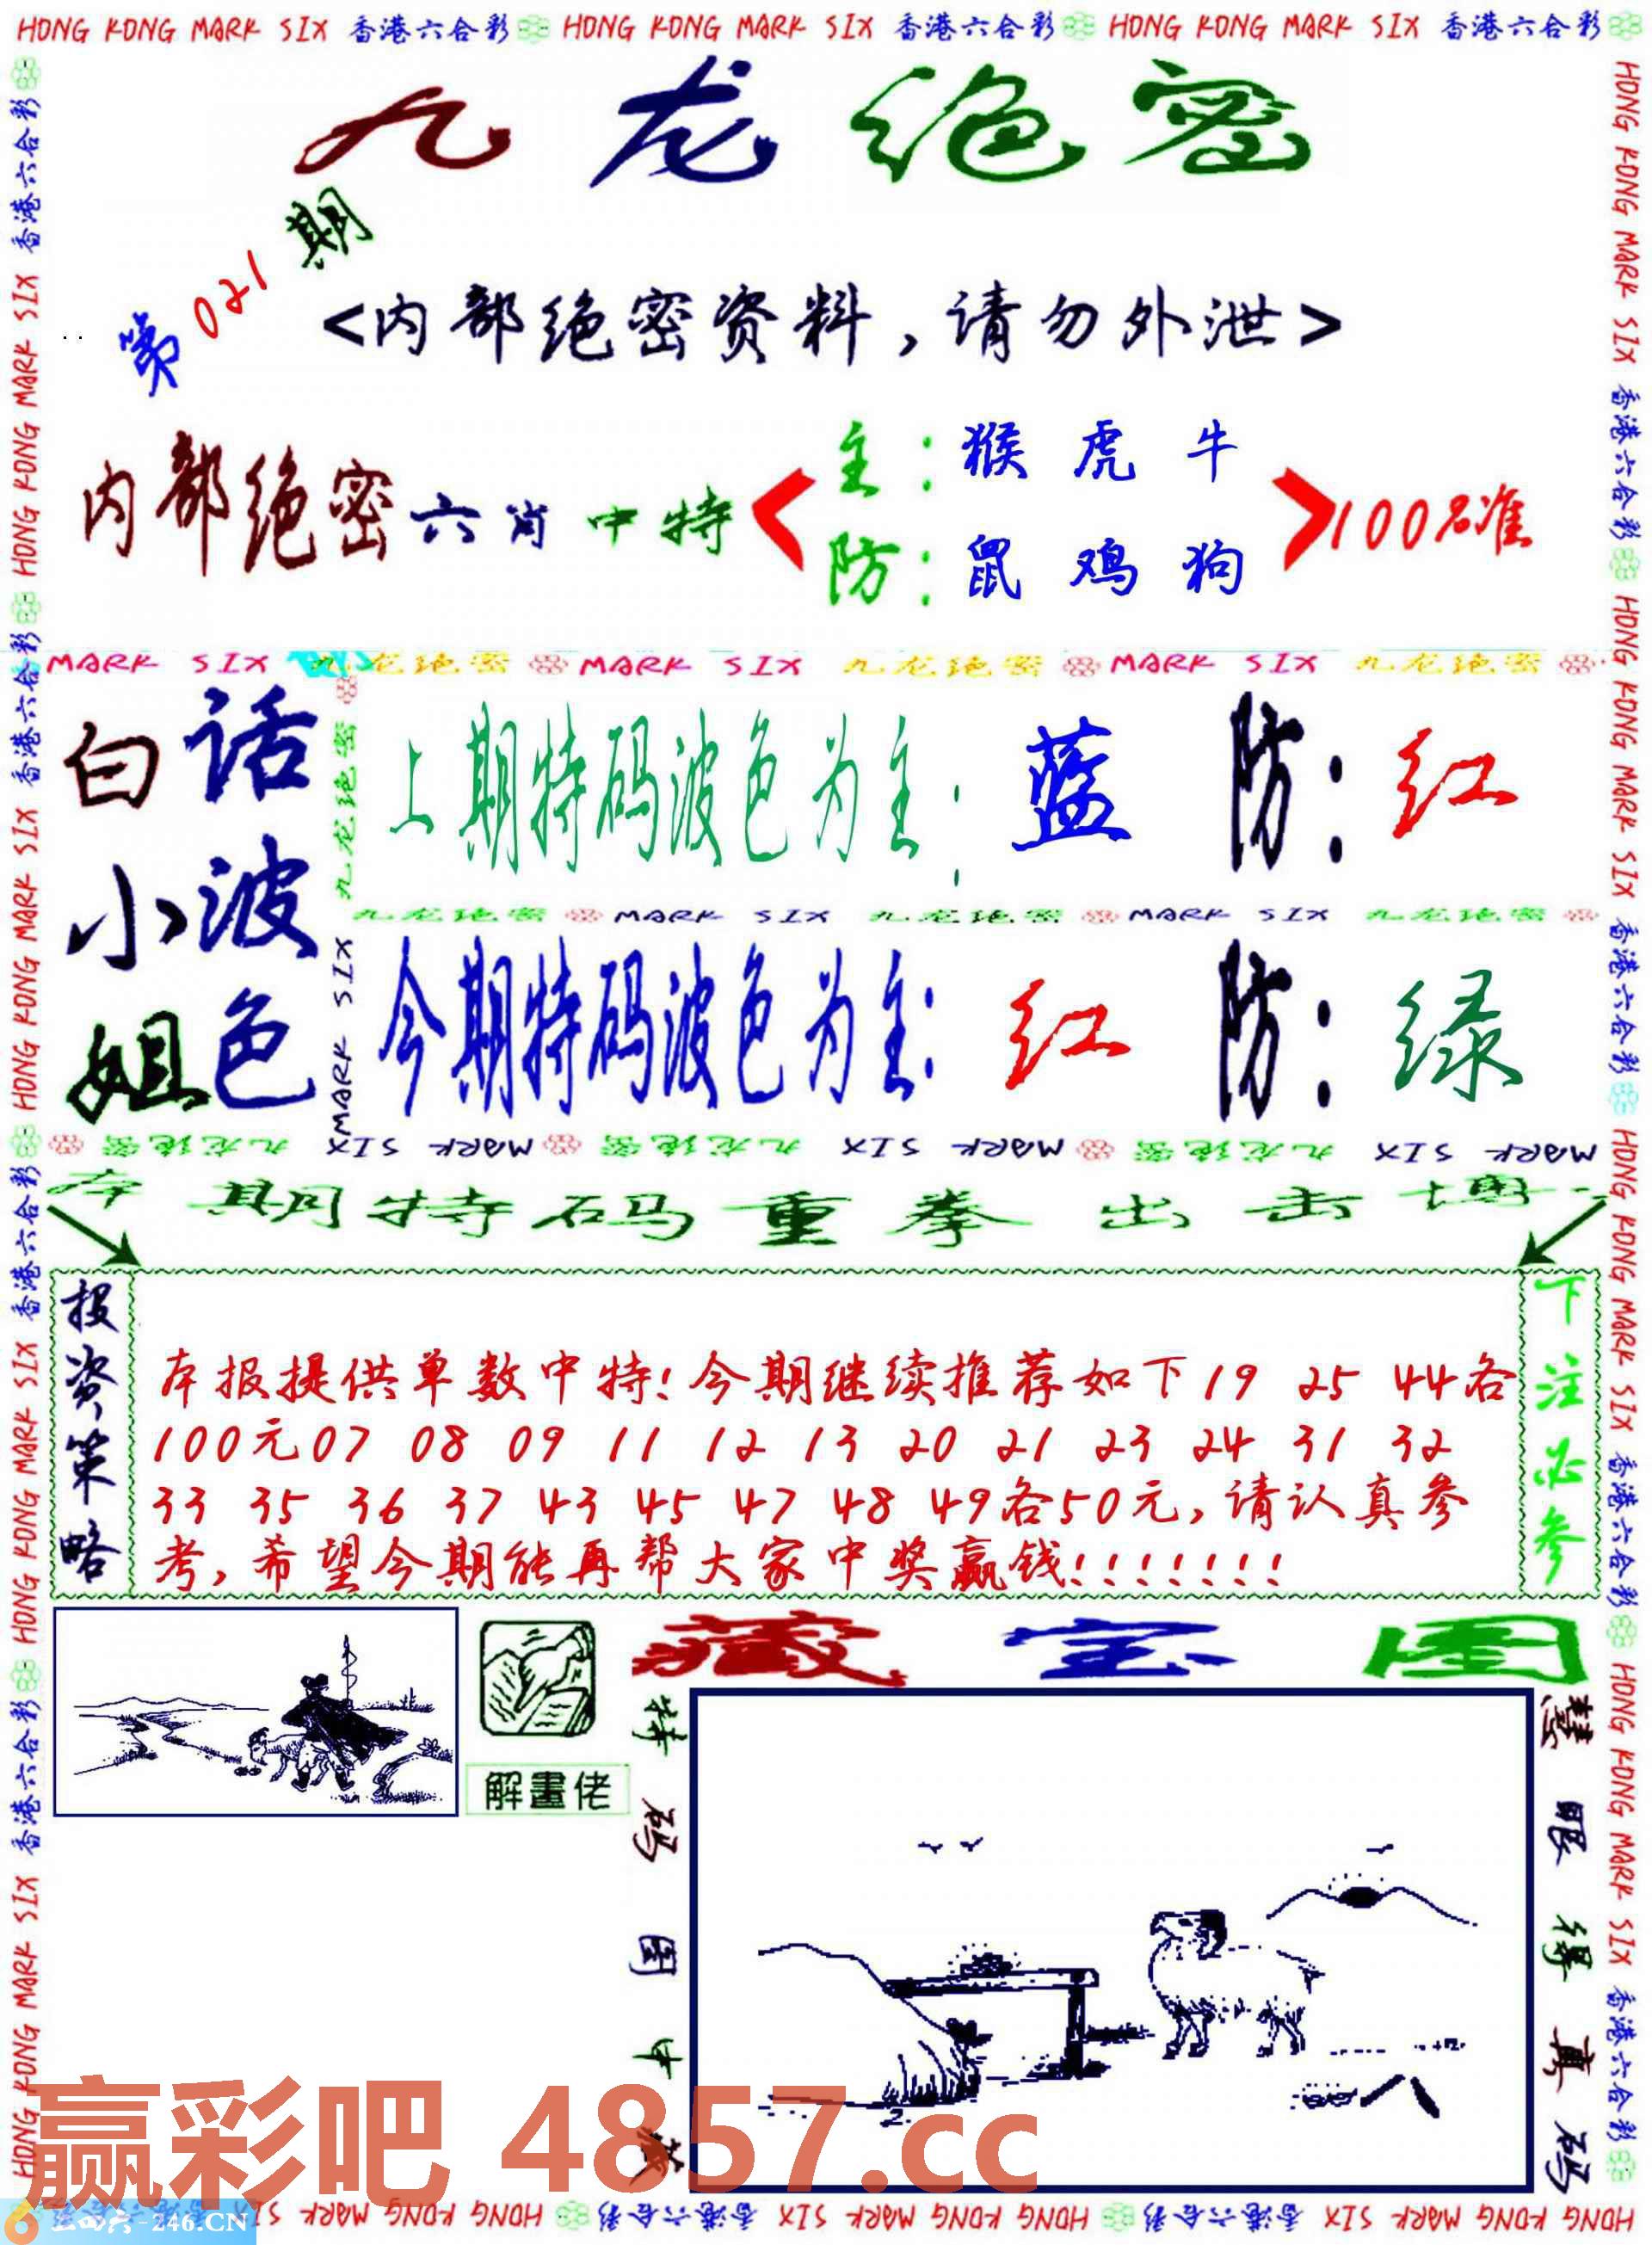 HONG KONG MARK SIX 香港六合彩 HONG KONG MARK SIX 香港六合彩 HONG KONG MARK SIX 香港六合彩
九龙绝密
第021期
<内部绝密资料,请勿外泄>
内部绝密六肖中特
主:猴 虎 牛
防:鼠 鸡 狗
100%准
MARK SIX 九龙绝密 MARK SIX 九龙绝密 MARK SIX 九龙绝密
白小姐
话波色
上期特码波色为主:蓝 防:红
九龙绝密 MARK SIX 九龙绝密 MARK SIX 九龙绝密
今期特码波色为主:红 防:绿
九龙绝密 MARK SIX 九龙绝密 MARK SIX 九龙绝密 MARK SIX
本期特码重拳出击博
投资策略
本报提供单数中特!今期继续推荐如下19 25 44各
100元07 08 09 11 12 13 20 21 23 24 31 32
33 35 36 37 43 45 47 48 49各50元,请认真参
考,希望今期能再帮大家中奖赢钱!!!!!!!
下注必参
解畫佬
藏宝图
特码图中藏
慧眼得真码
赢彩吧 4857.cc
246.CN
HONG KONG MARK SIX 香港六合彩 HONG KONG MARK SIX 香港六合彩 HONG KONG MARK SIX 香港六合彩